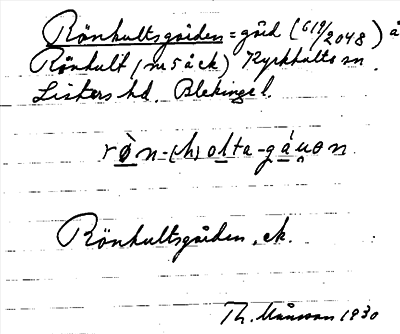 Rönhultsgården = gård (619/2048) å
Rönhult (nr 5 å ek) Kyrkhults sn.
Listers hd. Blekinge l.
rò̱n-(h)olta-gá̱u̯ən
Rönhultsgården, ek.
Th. Månsson 1930